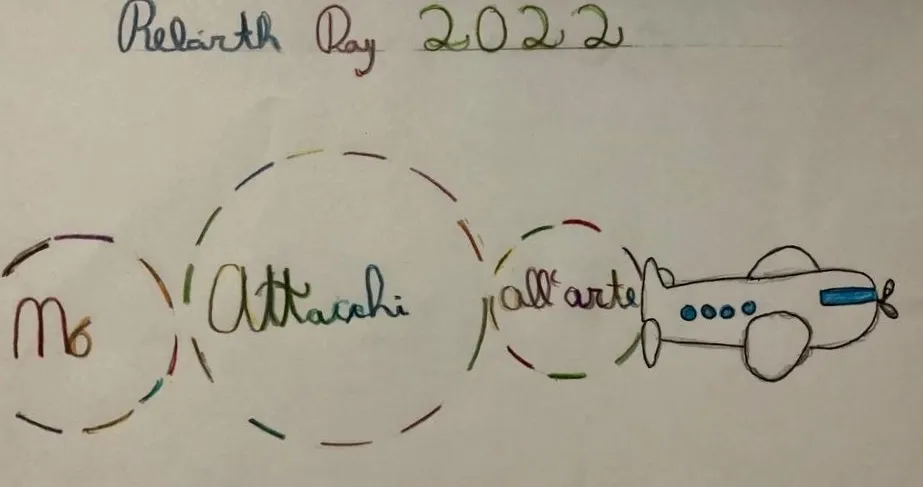 Rebirth Day 2022
Mo Attacchi all'arte